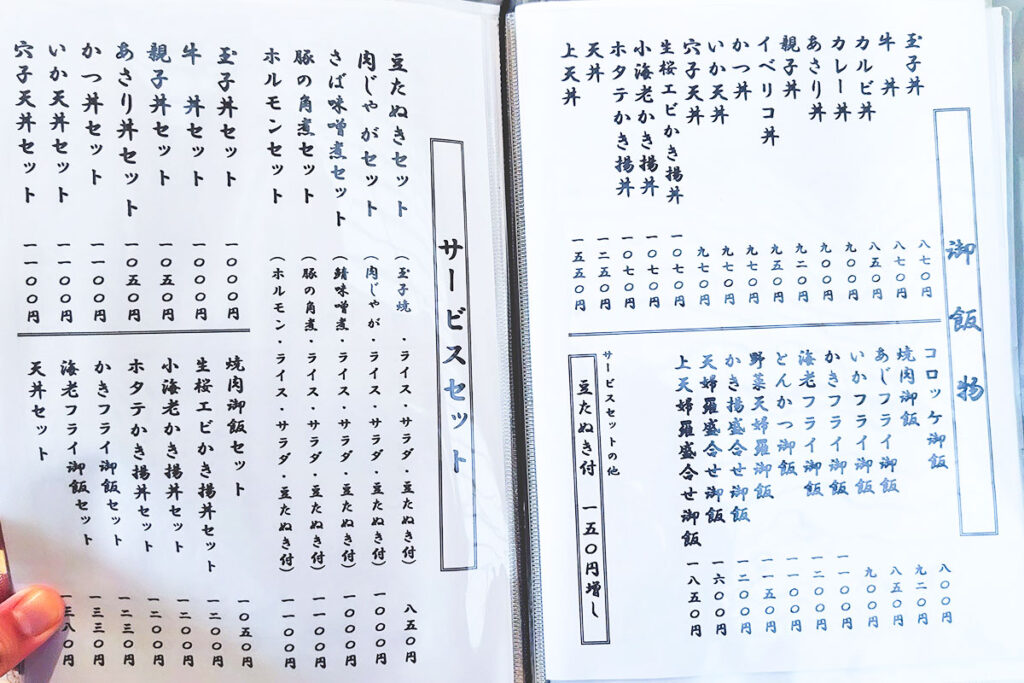 御飯物
玉子丼 八七〇円
牛丼 八七〇円
カルビ丼 八五〇円
カレー丼 九〇〇円
あさり丼 九〇〇円
親子丼 九二〇円
イベリコ丼 九五〇円
かつ丼 九七〇円
いか天丼 九七〇円
穴子天丼 九七〇円
生桜エビかき揚丼 一〇七〇円
小海老かき揚丼 一〇七〇円
ホタテかき揚丼 一〇七〇円
天丼 一二五〇円
上天丼 一五五〇円
コロッケ御飯 八〇〇円
焼肉御飯 九二〇円
あじフライ御飯 八五〇円
いかフライ御飯 九〇〇円
かきフライ御飯 一一〇〇円
海老フライ御飯 一二〇〇円
とんかつ御飯 一〇〇〇円
野菜天婦羅御飯 一一五〇円
かき揚盛合せ御飯 一二〇〇円
天婦羅盛合せ御飯 一六〇〇円
上天婦羅盛合せ御飯 一八五〇円
サービスセットの他
豆たぬき付 一五〇円増し
サービスセット
豆たぬきセット (玉子焼・ライス・サラダ・豆たぬき付) 八五〇円
肉じゃがセット (肉じゃが・ライス・サラダ・豆たぬき付) 一〇〇〇円
さば味噌煮セット (鯖味噌煮・ライス・サラダ・豆たぬき付) 一〇〇〇円
豚の角煮セット (豚の角煮・ライス・サラダ・豆たぬき付) 一一〇〇円
ホルモンセット (ホルモン・ライス・サラダ・豆たぬき付) 一一〇〇円
玉子丼セット 一〇〇〇円
牛丼セット 一〇〇〇円
親子丼セット 一〇五〇円
あさり丼セット 一〇五〇円
かつ丼セット 一一〇〇円
いか天丼セット 一一〇〇円
穴子天丼セット 一一〇〇円
焼肉御飯セット 一〇五〇円
生桜エビかき揚丼セット 一二〇〇円
小海老かき揚丼セット 一二〇〇円
ホタテかき揚丼セット 一二〇〇円
かきフライ御飯セット 一二三〇円
海老フライ御飯セット 一三三〇円
天丼セット 一三八〇円